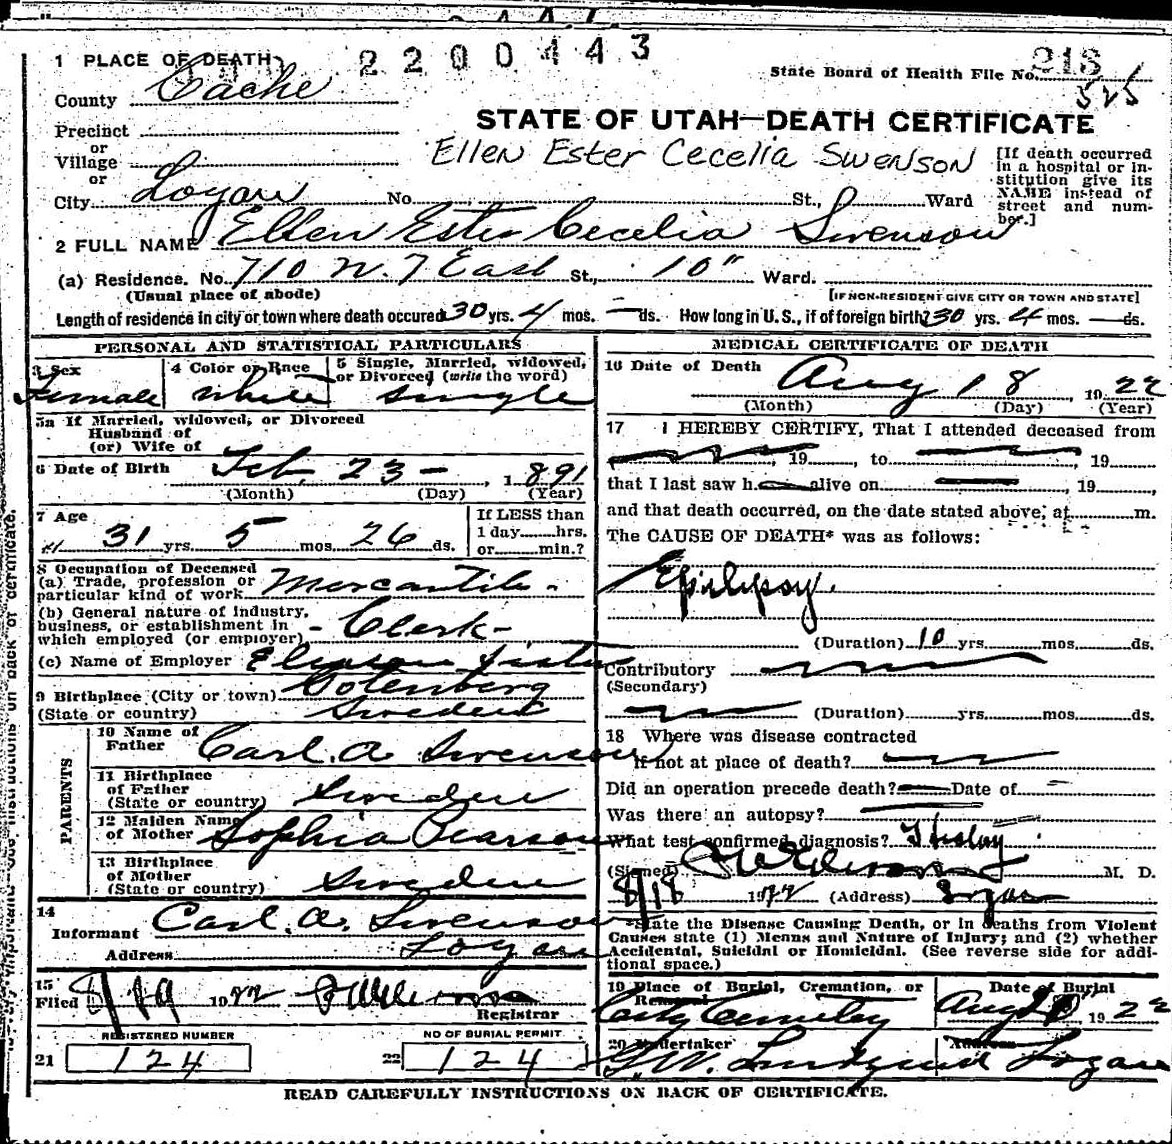 2200443
1 PLACE OF DEATH
State Board of Health File No. 213
525
County Cache
STATE OF UTAH—DEATH CERTIFICATE
Precinct
or
Village
or
Ellen Ester Cecelia Swenson
[If death occurred in a hospital or institution give its NAME instead of street and number.]
City Logan No. St., Ward
2 FULL NAME Ellen Ester Cecelia Swenson
(a) Residence. No. 710 N. 7 East St., 10" Ward.
(Usual place of abode) [IF NON-RESIDENT GIVE CITY OR TOWN AND STATE]
Length of residence in city or town where death occured 30 yrs. 4 mos. — ds. How long in U. S., if of foreign birth? 30 yrs. 4 mos. — ds.
PERSONAL AND STATISTICAL PARTICULARS
3 Sex
Female
4 Color or Race
white
5 Single, Married, widowed,
or Divorced (write the word)
single
5a If Married, widowed, or Divorced
Husband of
(or) Wife of
6 Date of Birth Feb. 23 — , 1891
(Month) (Day) (Year)
7 Age
31 yrs. 5 mos. 26 ds.
If LESS than
1 day hrs.
or min.?
8 Occupation of Deceased
(a) Trade, profession or
particular kind of work Mercantile -
(b) General nature of industry,
business, or establishment in
which employed (or employer) - Clerk -
(c) Name of Employer
9 Birthplace (City or town) Gotenberg
(State or country) Sweden
PARENTS
10 Name of
Father Carl. A Swenson
11 Birthplace
of Father
(State or country) Sweden
12 Maiden Name
of Mother Sophia Pearson
13 Birthplace
of Mother
(State or country) Sweden
14
Informant Carl. A. Swenson
Address Logan
15
Filed 8/19 1922
Registrar
REGISTERED NUMBER
21 124
NO OF BURIAL PERMIT
22 124
MEDICAL CERTIFICATE OF DEATH
16 Date of Death Aug 18 , 1922
(Month) (Day) (Year)
17 I HEREBY CERTIFY, That I attended deceased from
, 19 , to , 19
that I last saw h alive on , 19 ,
and that death occurred, on the date stated above, at m.
The CAUSE OF DEATH* was as follows:
Epilepsy.
(Duration) 10 yrs. mos. ds.
Contributory
(Secondary)
(Duration) yrs. mos. ds.
18 Where was disease contracted
If not at place of death?
Did an operation precede death? Date of
Was there an autopsy?
What test confirmed diagnosis?
(Signed) M. D.
8/18 1922 (Address) Logan
*State the Disease Causing Death, or in deaths from Violent
Causes state (1) Means and Nature of Injury; and (2) whether
Accidental, Suicidal or Homicidal. (See reverse side for additional space.)
19 Place of Burial, Cremation, or
Removal
City Cemetery
Date of Burial
Aug 1922
20 Undertaker
G. W. Lundquist
Address
Logan
READ CAREFULLY INSTRUCTIONS ON BACK OF CERTIFICATE.